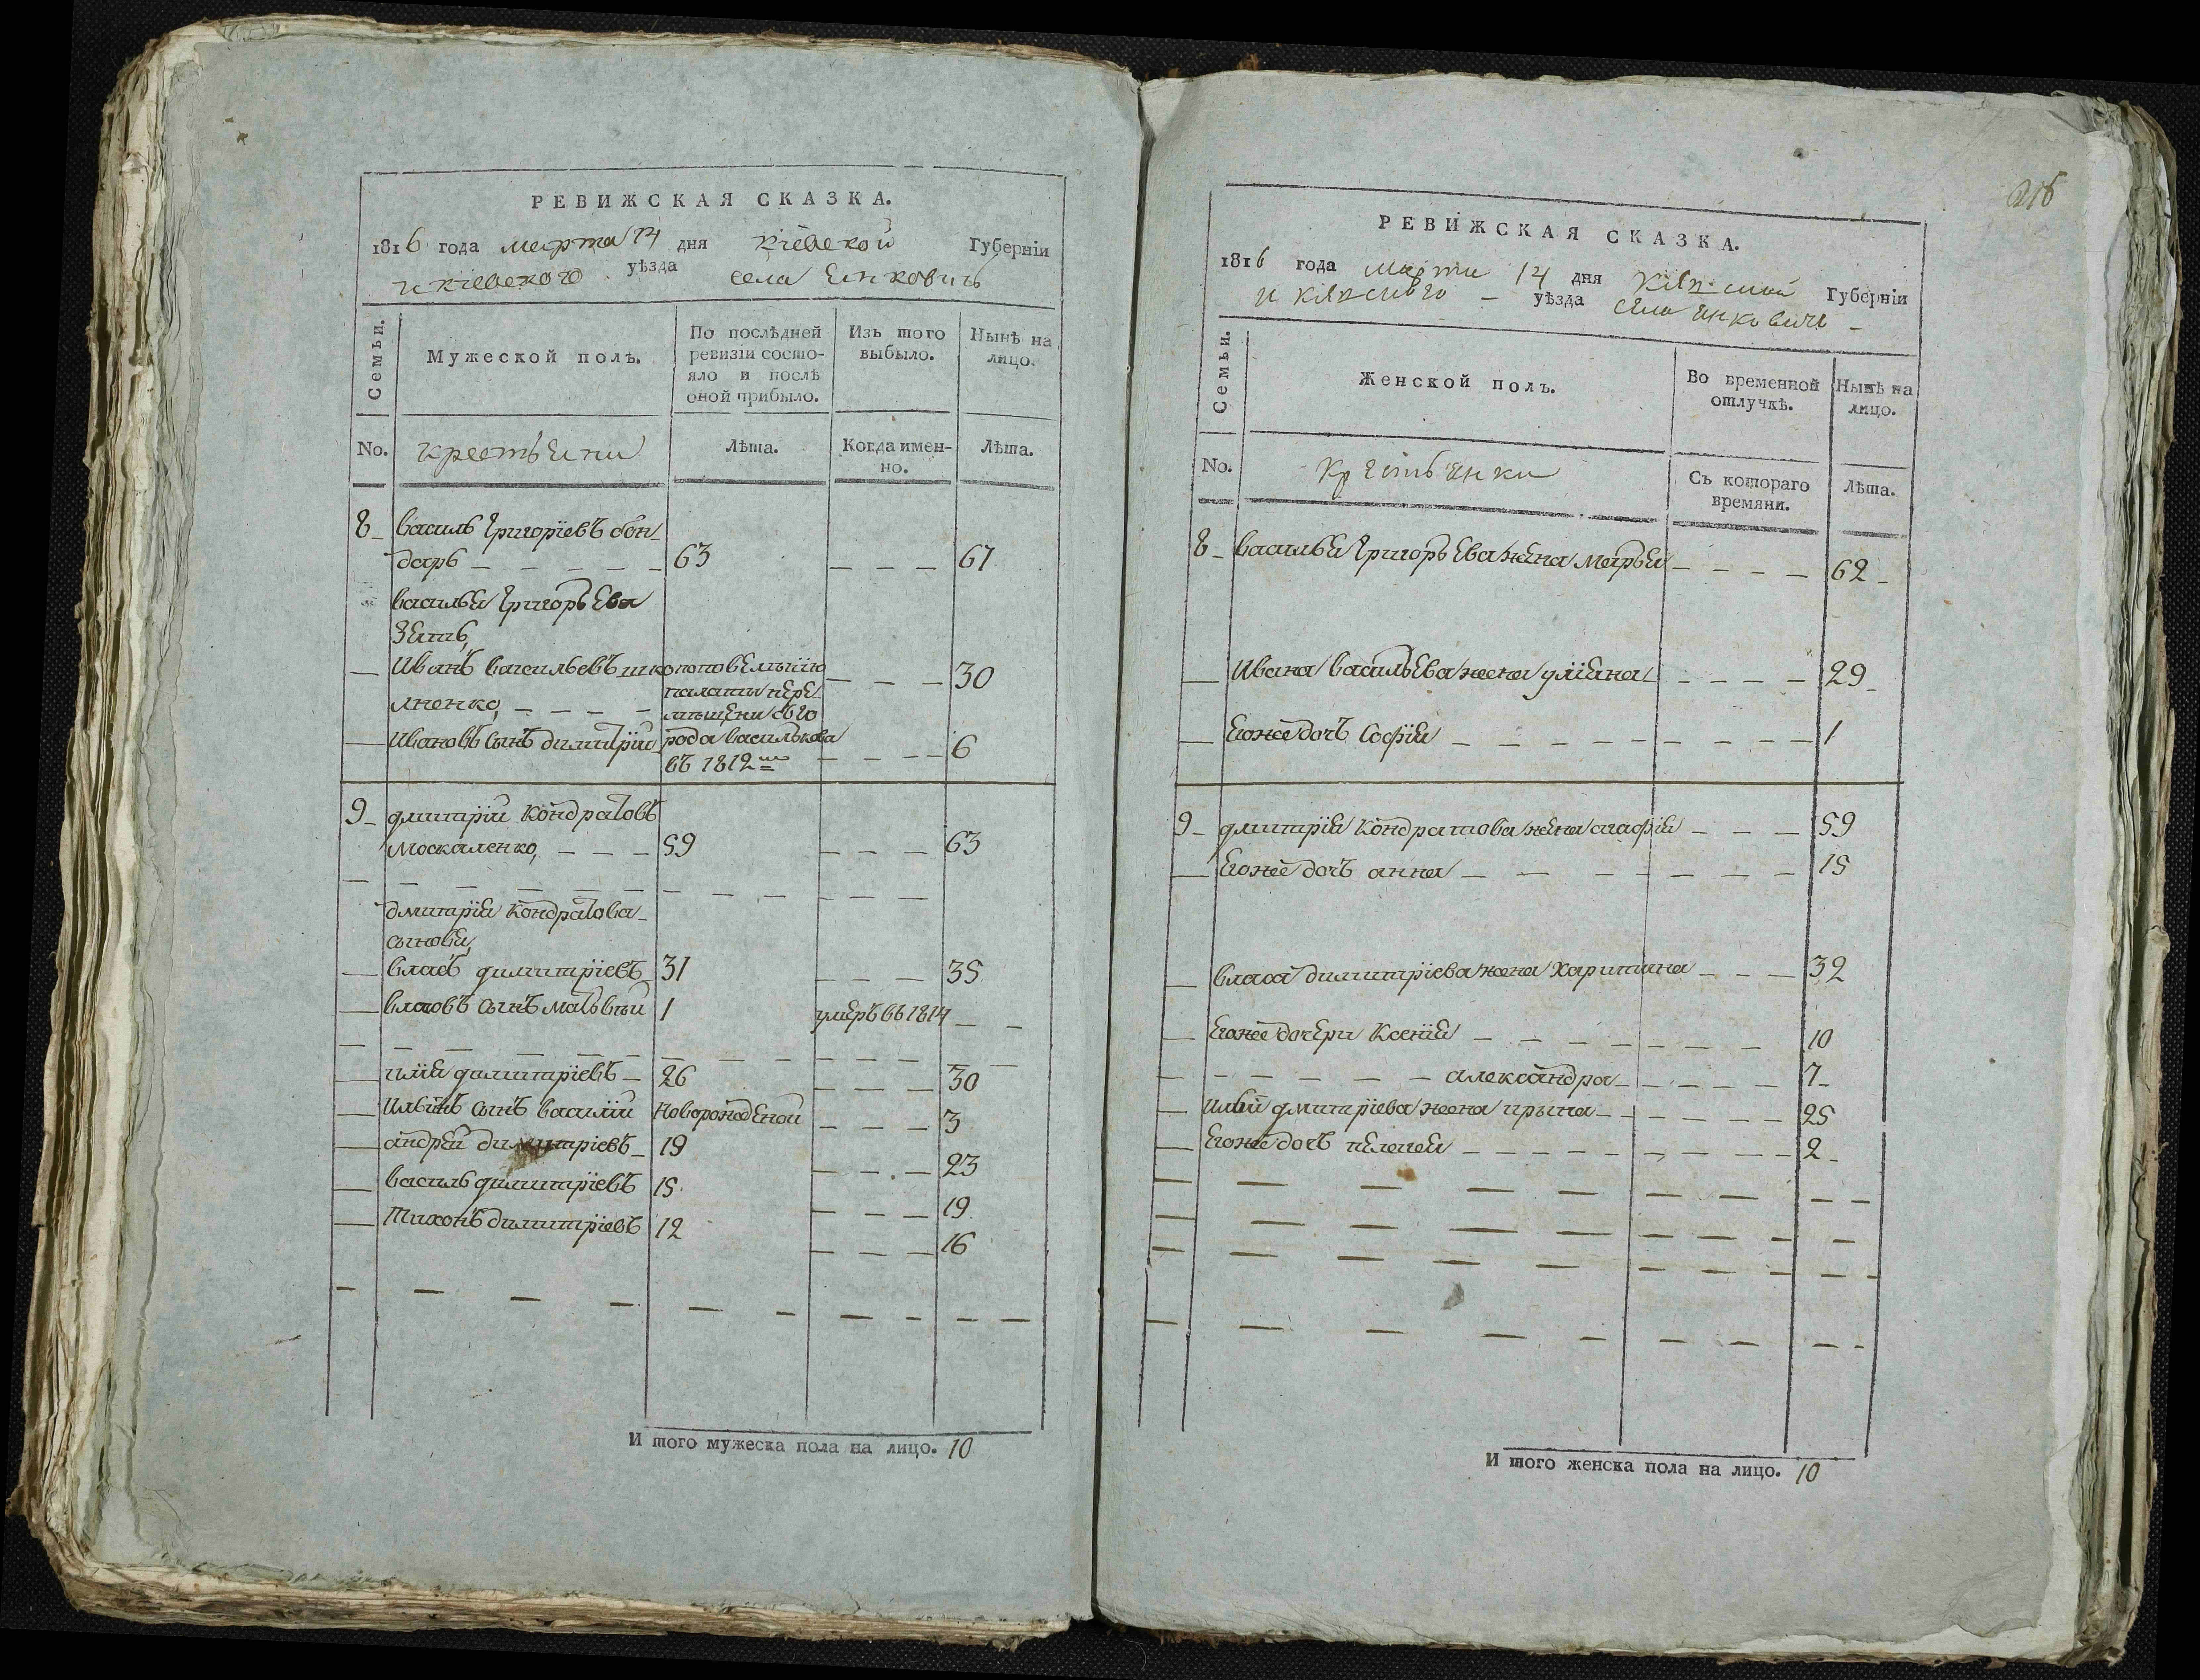 РЕВИЖСКАЯ СКАЗКА.
1816 года марта 14 дня Кіевской Губерніи
и кіевского уѣзда села Янковичь
Семьи.
Мужеской полъ.
По послѣдней ревизіи состояло и послѣ оной прибыло.
Изъ того выбыло.
Нынѣ на лицо.
No.
крестьяни
Лѣта.
Когда именно.
Лѣта.
8 василь григоріевъ бон-
дарь 63 67
василья григорьева
зять,
Иванъ васильевъ шко по повѣленїю 30
лненко, палаты пере
мѣщени зъ го
Ивановъ сынъ димитрїи рода василкова 6
въ 1812мъ
9 дмитрїи Кондратовъ
москаленко, 59 63
дмитрїя кондратова
сыновя,
власъ димитрїевъ 31 35
власовъ сынъ матвѣи 1 умеръ въ 1814
илїя димитрїевъ 26 30
Ильинъ сынъ василїи новорожденои 3
андрей димитрїевъ 19 23
василь димитрїевъ 15 19
Тихонъ димитрїевъ 12 16
И того мужеска пола на лицо. 10
216
РЕВИЖСКАЯ СКАЗКА.
1816 года марта 14 дня Кіевской Губерніи
и кіевского уѣзда села Янковичь
Семьи.
Женской полъ.
Во временной отлучкѣ.
Нынѣ на лицо.
No.
Крестьянки
Съ котораго времяни.
Лѣта.
8 василья григорьева жена марья 62
Ивана васильева жена улїяна 29
Егоже дочъ Софїя 1
9 дмитрїя кондратова жена агафїя 59
Егоже дочъ анна 15
власа димитрїева жена харитина 32
Егоже дочери Ксенїя 10
александра 7
Ильи дмитрїева жена ирына 25
Егоже дочъ пелагея 2
И того женска пола на лицо. 10